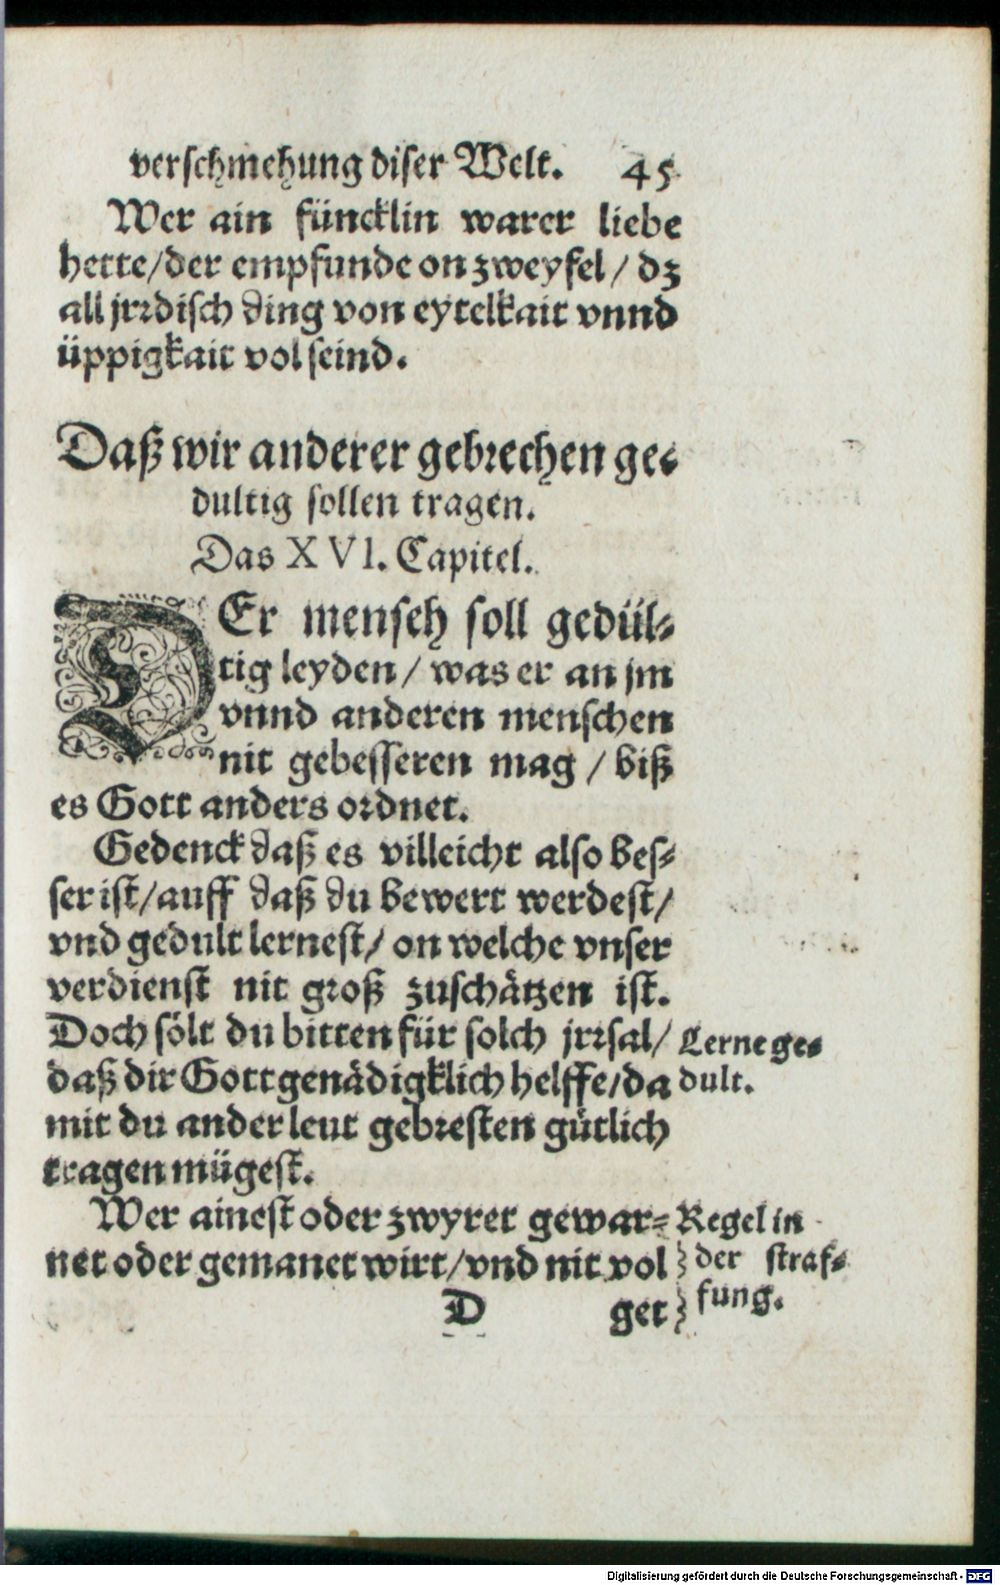 verschmehung diser Welt. 45
Wer ain füncklin warer liebe
hette/der empfunde on zweyfel/ dz
all jrrdisch ding von eytelkait vnnd
üppigkait vol seind.
Daß wir anderer gebrechen ge-
dultig sollen tragen.
Das XVI. Capitel.
DEr mensch soll gedül-
tig leyden/ was er an jm
vnnd anderen menschen
nit gebesseren mag/ biß
es Gott anders ordnet.
Gedenck daß es villeicht also bes-
ser ist/auff daß du bewert werdest/
vnd gedult lernest/ on welche vnser
verdienst nit groß zuschätzen ist.
Doch sölt du bitten für solch jrrsal/
daß dir Gott genädigklich helffe/da
mit du ander leut gebresten gütlich
tragen mügest.
Lerne ge-
dult.
Wer ainest oder zwyret gewar-
net oder gemanet wirt/vnd nit vol
Regel in
der straf-
fung.
D get
Digitalisierung gefördert durch die Deutsche Forschungsgemeinschaft - DFG